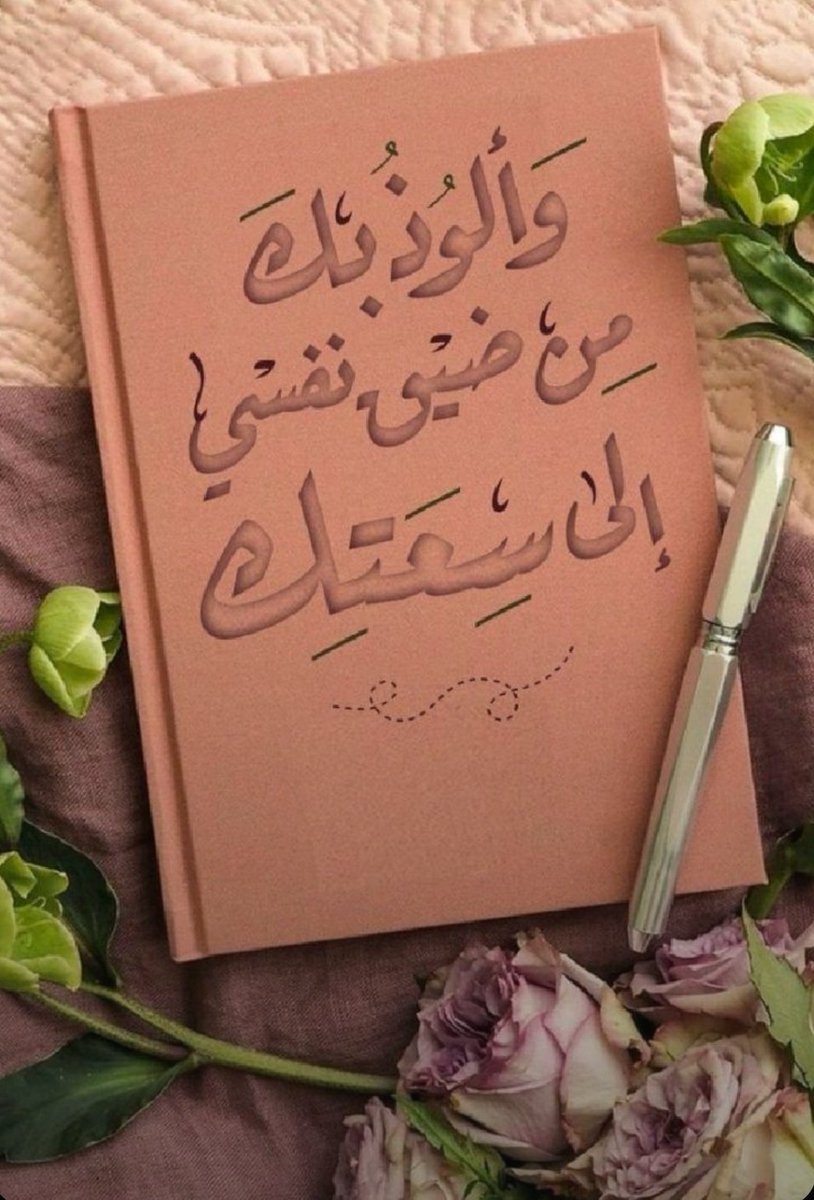 وَألوُذُ بِكَ
مِن ضيْق نفسْي
إلىٰ سِعَتِك